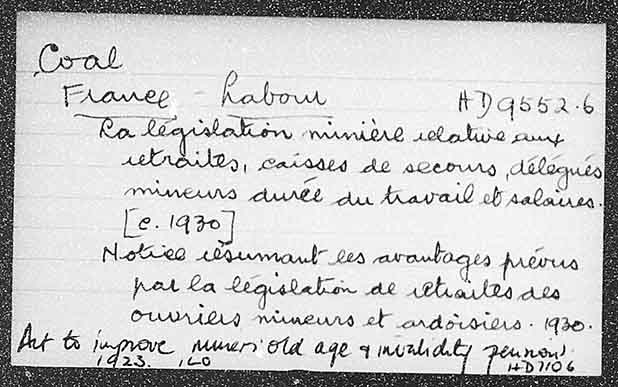 Coal
France - Labour HD9552.6
La législation minière relative aux
retraites, caisses de secours, délégués
mineurs durée du travail et salaires.
[c. 1930]
Notice résumant les avantages prévus
par la législation de retraites des
ouvriers mineurs et ardoisiers. 1930.
Act to improve miners' old age & invalidity pensions
1923. ILO HD7106